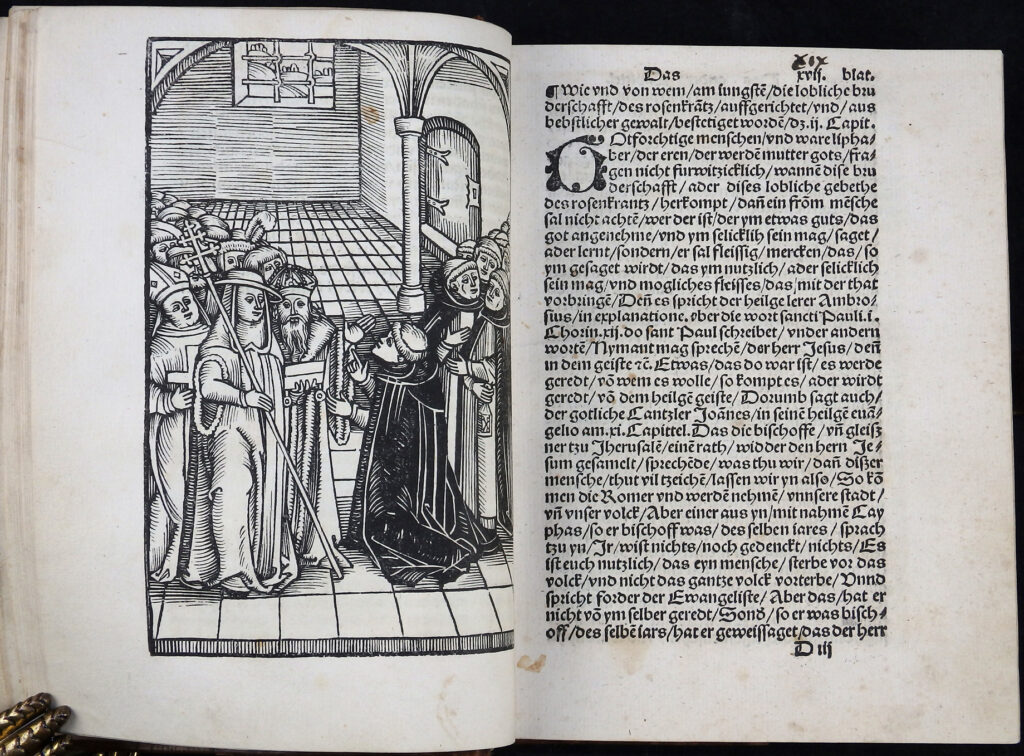 xix
Das xvij. blat.
¶ Wie vnd von wem/am iungstẽ/die lobliche bru
derschafft/des rosenkrãtz/auffgerichtet/vnd/aus
bebstlicher gewalt/bestetiget wordẽ/dz.ii. Capit.
GOtforchtige menschen/vnd ware liepha⸗
ber/der eren/der werdẽ mutter gots/fra⸗
gen nicht furwitzicklich/wannẽ dise bru
derschafft/ader dises lobliche gebethe
des rosenkrantz/herkompt/dañ ein frõm mẽsche
sal nicht achtẽ/wer der ist/der ym etwas guts/das
got angenehme/vnd ym selicklih sein mag/saget/
ader lernt/sondern/er sal fleissig/mercken/das/so
ym gesaget wirdt/das ym nutzlich/ader selicklich
sein mag/vnd mogliches fleisses/das/mit der that
vorbringẽ/Deñ es spricht der heilge lerer Ambro⸗
sius/in explanatione.vber die wort sancti Pauli.i.
Chorin.xij.do sant Paul schreibet/vnder andern
wortẽ/Nymant mag sprechẽ/der herr Jesus/deñ
in dem geiste ⁊c̃. Etwas/das do war ist/es werde
geredt/võ wem es wolle/so kompt es/ader wirdt
geredt/võ dem heilgẽ geiste/Dorumb sagt auch/
der gotliche Cantzler Joãnes/in seinẽ heilgẽ euã⸗
gelio am.xi.Capittel.Das die bischoffe/vñ gleisz
ner tzu Jherusalẽ/einẽ rath/widder den hern Je⸗
sum gesamelt/sprechẽde/was thu wir/dañ diszer
mensche/thut vil tzeichẽ/lassen wir yn also/So kõ
men die Romer vnd werdẽ nehmẽ/vnnsere stadt/
vñ vnser volck/Aber einer aus yn/mit nahmẽ Cay
phas/so er bischoff was/des selben iares/sprach
tzu yn/Jr/wist nichts/noch gedenckt/nichts/Es
ist euch nutzlich/das eyn mensche/sterbe vor das
volck/vnd nicht das gantze volck vorterbe/Vnnd
spricht forder der Ewangeliste/Aber das/hat er
nicht võ ym selber geredt/Sonð/so er was bisch⸗
off/des selbẽ iars/hat er geweissaget/das der herr
D iij